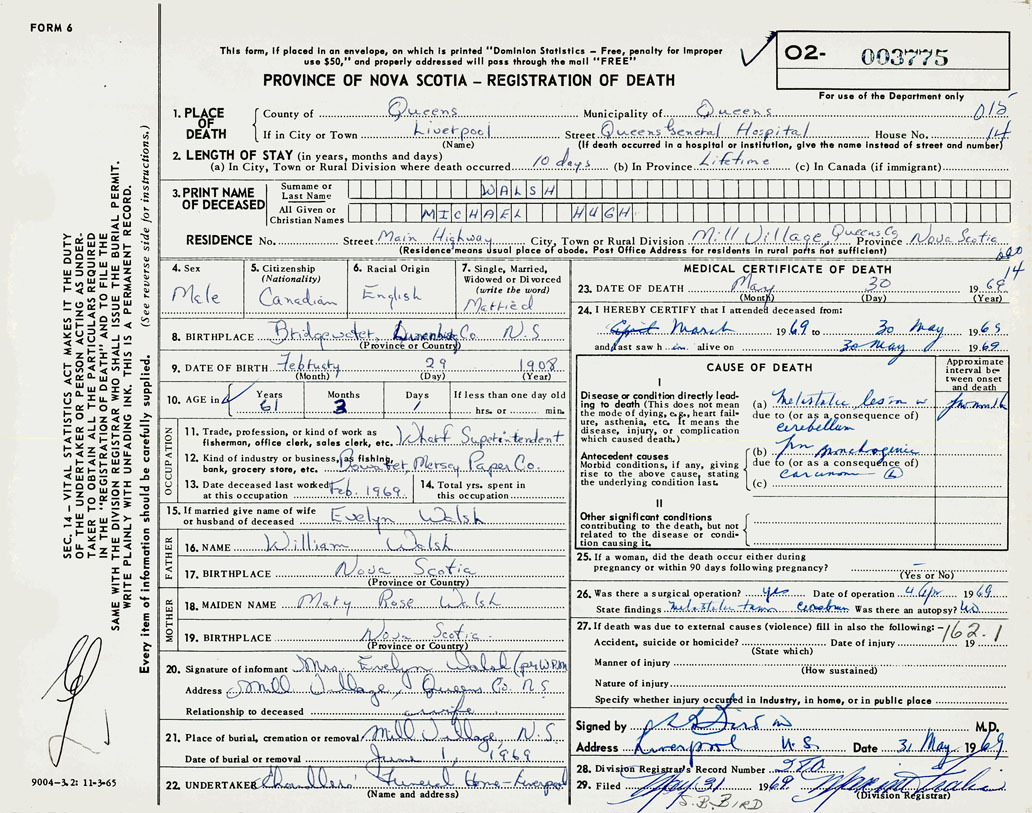 FORM 6
This form, if placed in an envelope, on which is printed "Dominion Statistics – Free, penalty for improper
use $50," and properly addressed will pass through the mail "FREE"
PROVINCE OF NOVA SCOTIA – REGISTRATION OF DEATH
O2- 003775
For use of the Department only
SEC. 14 – VITAL STATISTICS ACT MAKES IT THE DUTY
OF THE UNDERTAKER OR PERSON ACTING AS UNDER-
TAKER TO OBTAIN ALL THE PARTICULARS REQUIRED
IN THE "REGISTRATION OF DEATH" AND TO FILE THE
SAME WITH THE DIVISION REGISTRAR WHO SHALL ISSUE THE BURIAL PERMIT.
WRITE PLAINLY WITH UNFADING INK. THIS IS A PERMANENT RECORD.
Every item of information should be carefully supplied. (See reverse side for instructions.)
1. PLACE OF DEATH
County of Queens Municipality of Queens 015
If in City or Town Liverpool Street Queens General Hospital House No. 14
(Name) (If death occurred in a hospital or institution, give the name instead of street and number)
2. LENGTH OF STAY (in years, months and days)
(a) In City, Town or Rural Division where death occurred 10 days (b) In Province Lifetime (c) In Canada (if immigrant)
3. PRINT NAME OF DECEASED
Surname or Last Name WALSH
All Given or Christian Names MICHAEL HUGH
RESIDENCE No. Street Main Highway City, Town or Rural Division Mill Village, Queens Co Province Nova Scotia
(Residence means usual place of abode. Post Office Address for residents in rural parts not sufficient)
14
4. Sex Male
5. Citizenship (Nationality) Canadian
6. Racial Origin English
7. Single, Married, Widowed or Divorced (write the word) Married
8. BIRTHPLACE Bridgewater, Lunenburg Co. N.S
(Province or Country)
9. DATE OF BIRTH February 29 1908
(Month) (Day) (Year)
10. AGE in Years 61 Months 3 Days 1 If less than one day old hrs. or min.
OCCUPATION
11. Trade, profession, or kind of work as
fisherman, office clerk, sales clerk, etc. Wharf Superintendent
12. Kind of industry or business, as fishing,
bank, grocery store, etc. Bowater Mersey Paper Co.
13. Date deceased last worked at this occupation Feb. 1969. 14. Total yrs. spent in this occupation
15. If married give name of wife
or husband of deceased Evelyn Walsh
FATHER
16. NAME William Walsh
17. BIRTHPLACE Nova Scotia
(Province or Country)
MOTHER
18. MAIDEN NAME Mary Rose Walsh
19. BIRTHPLACE Nova Scotia
(Province or Country)
20. Signature of informant Mrs. Evelyn Walsh
Address Mill Village, Queens Co. N.S
Relationship to deceased wife
21. Place of burial, cremation or removal Mill Village, N.S.
Date of burial or removal June 1, 1969
22. UNDERTAKER Chandlers' Funeral Home - Liverpool
(Name and address)
9004–3.2: 11-3-65
MEDICAL CERTIFICATE OF DEATH
23. DATE OF DEATH May 30 1969
(Month) (Day) (Year)
24. I HEREBY CERTIFY that I attended deceased from:
March 1969 to 30 May 1969
and last saw him alive on 30 May 1969
CAUSE OF DEATH
Approximate interval between onset and death
I
Disease or condition directly leading to death (This does not mean the mode of dying, e.g., heart failure, asthenia, etc. It means the disease, injury, or complication which caused death.)
(a) Metastatic lesion
due to (or as a consequence of)
cerebellum
Antecedent causes
Morbid conditions, if any, giving rise to the above cause, stating the underlying condition last.
(b) bronchogenic
due to (or as a consequence of)
carcinoma
(c)
II
Other significant conditions
contributing to the death, but not related to the disease or condition causing it.
25. If a woman, did the death occur either during
pregnancy or within 90 days following pregnancy? –
(Yes or No)
26. Was there a surgical operation? yes Date of operation 4 Apr 1969
State findings Metastatic cerebrum Was there an autopsy? No
27. If death was due to external causes (violence) fill in also the following: 162.1
Accident, suicide or homicide? Date of injury 19
(State which)
Manner of injury
(How sustained)
Nature of injury
Specify whether injury occurred in Industry, in home, or in public place
Signed by M.D.
Address Liverpool N.S. Date 31 May 1969
28. Division Registrar's Record Number
29. Filed May 31 1969
(Division Registrar)
S.B. BIRD